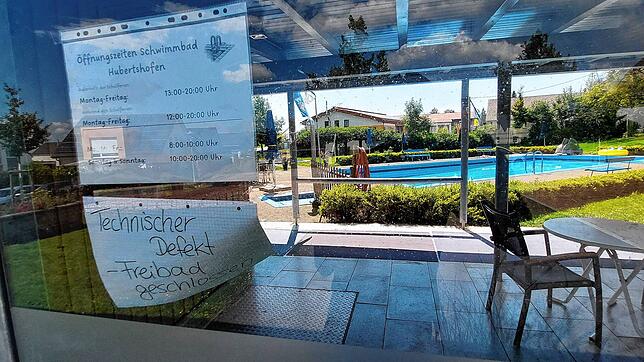 Öffnungszeiten Schwimmbad
Hubertshofen
Montag-Freitag: 13:00-20:00 Uhr
Montag-Freitag: 12:00-20:00 Uhr
8:00-10:00 Uhr
& Sonntag: 10:00-20:00 Uhr
Technischer
Defekt
-Freibad
geschlossen